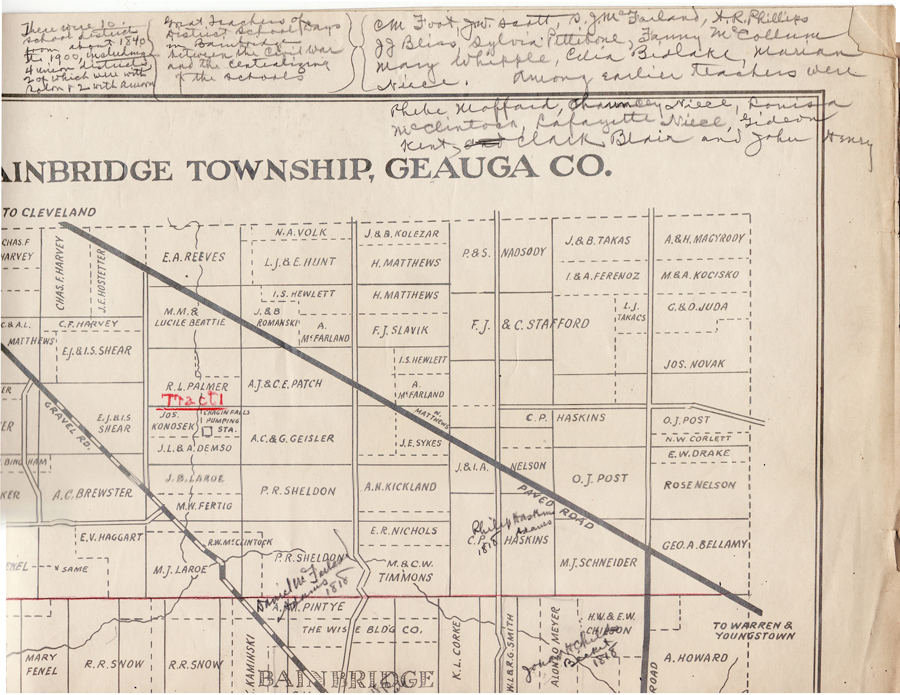 There were 10
school districts
from about 1840
to 1900, including
4 union districts
2 of which were with
Solon & 2 with Auburn
Great Teachers of
District School Days
in Bainbridge
between the Civil War
and the Centralizing
of the schools
C M Foot, Jno Scott, S. J. McFarland, H. R. Phillips
JJ Bliss, Sylvia Pettibone, Fanny McCollum
Mary Whipple, Celia Bidlake, Marian
Niece. Among earlier teachers were
Phebe Moffard, Chauncey Niece, Louisa
McClintock, Lafayette Niece, Gideon
Kent, Clark Blair and John Henry
AINBRIDGE TOWNSHIP, GEAUGA CO.
TO CLEVELAND
CHAS. F.
HARVEY
CHAS. F. HARVEY
J.E. HOSTETTER
E.A. REEVES
N.A. VOLK
L.J. & E. HUNT
J. & B. KOLEZAR
H. MATTHEWS
P. & S. NADSODY
J. & B. TAKAS
A. & H. MAGYRODY
I. & A. FERENOZ
M. & A. KOCISKO
I.S. HEWLETT
H. MATTHEWS
M.M. &
LUCILE BEATTIE
J. & B.
ROMANSKI
A.
McFARLAND
F.J. SLAVIK
F.J. & C. STAFFORD
L.J.
TAKACS
G. & D. JUDA
C. & A.L.
MATTHEWS
C.F. HARVEY
E.J. & I.S. SHEAR
I.S. HEWLETT
JOS. NOVAK
R.L. PALMER
A.J. & C.E. PATCH
A.
McFARLAND
Tract 1
GRAVEL RD.
E.J. & I.S
SHEAR
JOS.
KONOSEK
CHAGIN FALLS
PUMPING
STA.
N.
MATTHEWS
C.P. HASKINS
O.J. POST
N.W. CORLETT
J.L. & A. DEMSO
A.C. & G. GEISLER
J.E. SYKES
E.W. DRAKE
BINGHAM
J. & I.A. NELSON
A.C. BREWSTER
J.B. LAROE
P.R. SHELDON
A.H. KICKLAND
O.J. POST
ROSE NELSON
M.W. FERTIG
PAVED ROAD
E.V. HAGGART
R.W. McCLINTOCK
E.R. NICHOLS
Philip Haskins
Adams
1818
C.P. HASKINS
GEO. A. BELLAMY
FENEL
SAME
M.J. LAROE
P.R. SHELDON
M. & C.W.
TIMMONS
M.J. SCHNEIDER
Daniel McFarland
Adams
1818
A.M. PINTYE
THE WISE BLDG CO.
H.W. & E.W.
CHILSON
TO WARREN &
YOUNGSTOWN
MARY
FENEL
R.R. SNOW
R.R. SNOW
KAMINSKI
BAINBRIDGE
K.L. CORKE
W.L. & R.G. SMITH
ALONZO MEYER
Becket
1818
ROAD
A. HOWARD